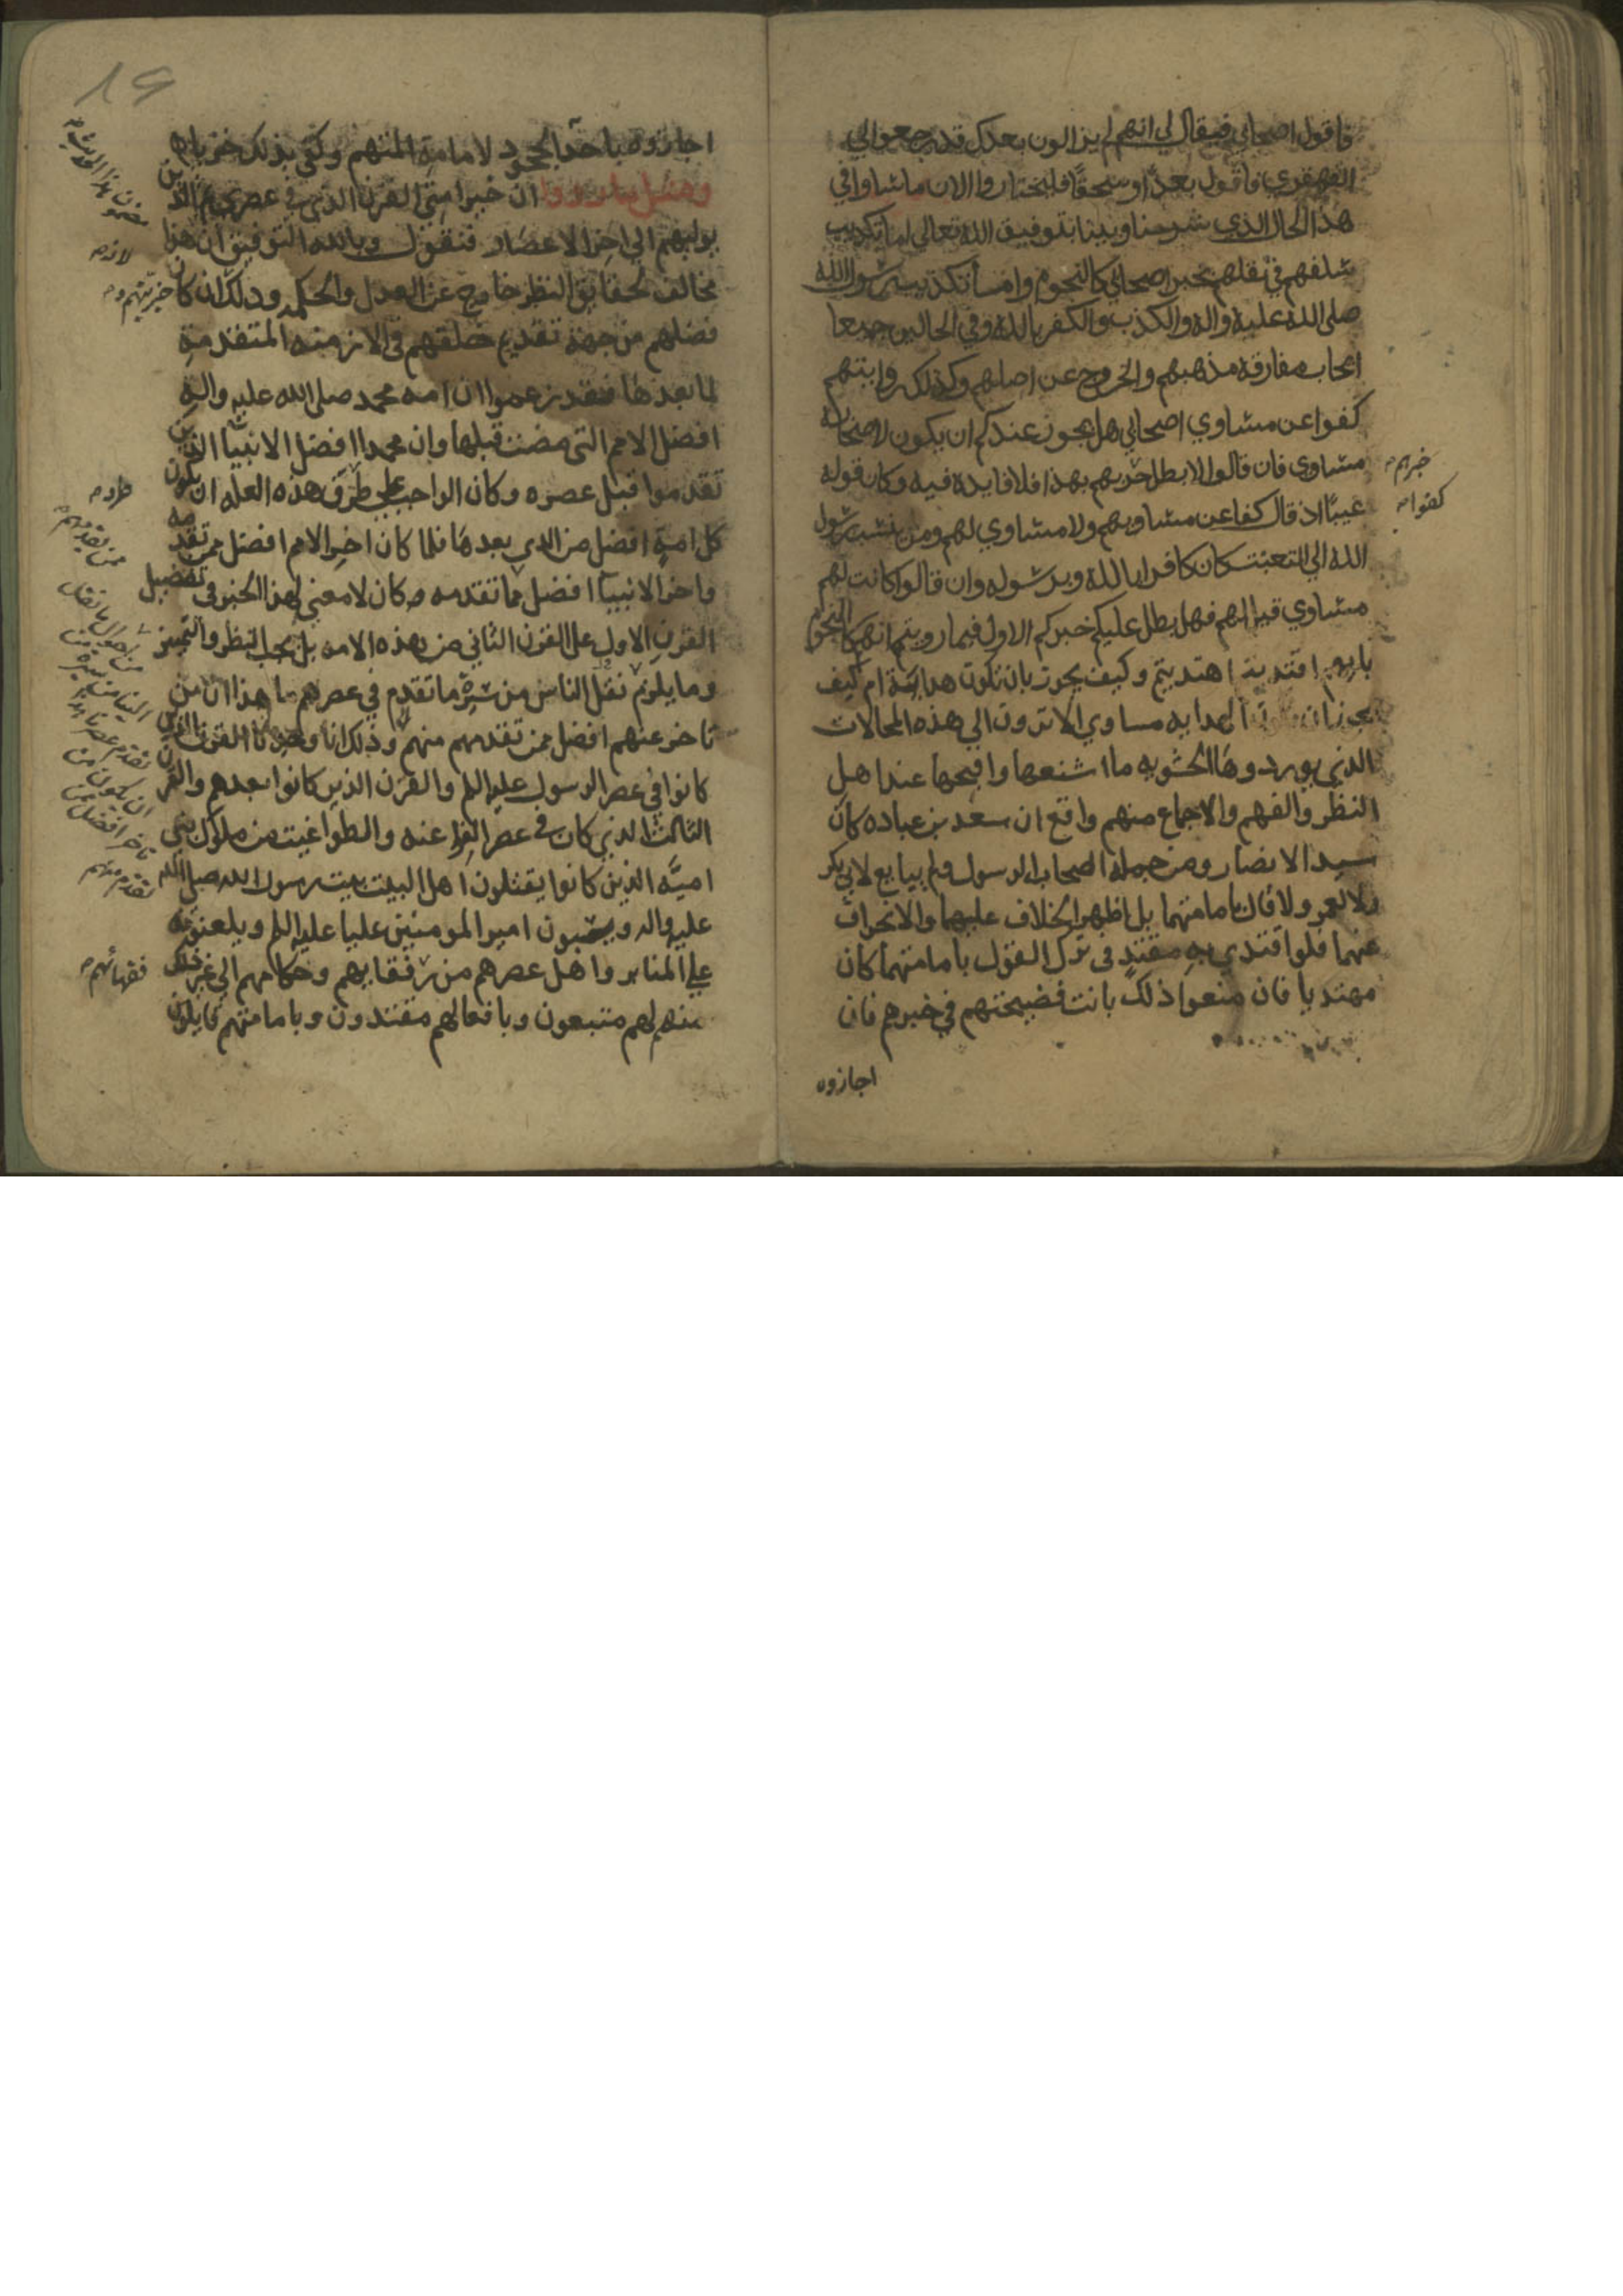 فاقول اصحابي فيقال لي انهم لم يزالون بعدك قد رجعوا الي
القهقري فاقول بعدًا وسحقًا فليختاروا الان ماشاوا في
هذا الحال الذي شرحنا وبينا بتوفيق الله تعالي اما تكذيب
سلفهم في نقلهم بخبر اصحابي كالنجوم وامسا تكذيب رسول الله
صلى الله عليه واله والكذب والكفر بالله وفي الحالين جميعا
ايجاب مفارقة مذهبهم والخروج عن اصلهم وكذلك روايتهم
كفوا عن مساوي اصحابي هل يجوز عندكم ان يكون لاصحابه
مساوي فان قالوا لا بطل خبرهم بهذا فلا فايدة فيه وكان قوله
خبرهم
عيبًا اذ قال كفوا عن مساويهم ولا مساوي لهم ومن نسب رسول
كفوا
الله الي التعبث كان كافرا بالله وبرسوله وان قالوا كانت لهم
مساوي قيل لهم فهل بطل عليكم خبركم الاول فيما رويتم انهم كالنجوم
بايهم اقتديتم اهتديتم وكيف يجوز بان تكون هداية ام كيف
يجوز ان الهدايه مساوي الا ترون الي هذه المحالات
الذي يوردوها الحشويه ما اشنعها واقبحها عند اهل
النظر والفهم والاجماع منهم واقع ان سعد بن عباده كان
سيد الانصار ومن جملة اصحاب الرسول ولم يبايع لابي بكر
ولا لعمر ولا قال بامامتهما بل اظهر الخلاف عليهما والانحراف
عنهما فلو اقتدي به مقتدٍ في ترك القول بامامتهما كان
مهتديا فان منعوا ذلك بانت فضيحتهم في خبرهم فان
اجازوه
19
اجازوه اباحوا الجحود لامامة ائمتهم وكفى بذلك خزيا
ان خير امتي القرن الذي في عصري ثم الذين
يولونهم الي اخر الاعصار فنقول وبالله التوفيق ان هذا
مخالف لحقايق النظر خارج عن العدل والحكمه وذلك ان كان
فضلهم من جهة تقديم خلقهم في الازمنه المتقدمة
لما بعدها فقد زعموا ان امه محمد صلى الله عليه واله
افضل الامم التي مضت قبلها وان محمدا افضل الانبيا الذين
تقدموا قبل عصره وكان الواجب على طرق هذه العله ان يكون
طرد
كل امة افضل من الذي بعدها فلما كان اخر الامم افضل ممن تقدمه
واخر الانبيا افضل مما تقدمه كان لا معني لهذا الخبر في تفضيل
القرن الاول علي القرن الثاني من هذه الامه بل يجب النظر والتمييز
وما يلزم نقل الناس من سيرة ما تقدم في عصرهم هذا ان من
تاخر عنهم افضل ممن تقدمهم منهم وذلك انا وجدنا القرن الذي
كانوا في عصر الرسول عليه السلم والقرن الذين كانوا بعدهم والقرن
الثالث الذي كان في عصر الفراعنه والطواغيت من ملوك بني
اميّه الذين كانوا يقتلون اهل البيت بيت رسول الله صلى الله
عليه واله ويسبون امير المومنين عليا عليه السلم ويلعنونه
علي المنابر واهل عصرهم من فقهايهم وحكامهم الي غير ذلك
فقهائهم
منهم لهم متبعون وبافعالهم مقتدون وبامامتهم قايلون